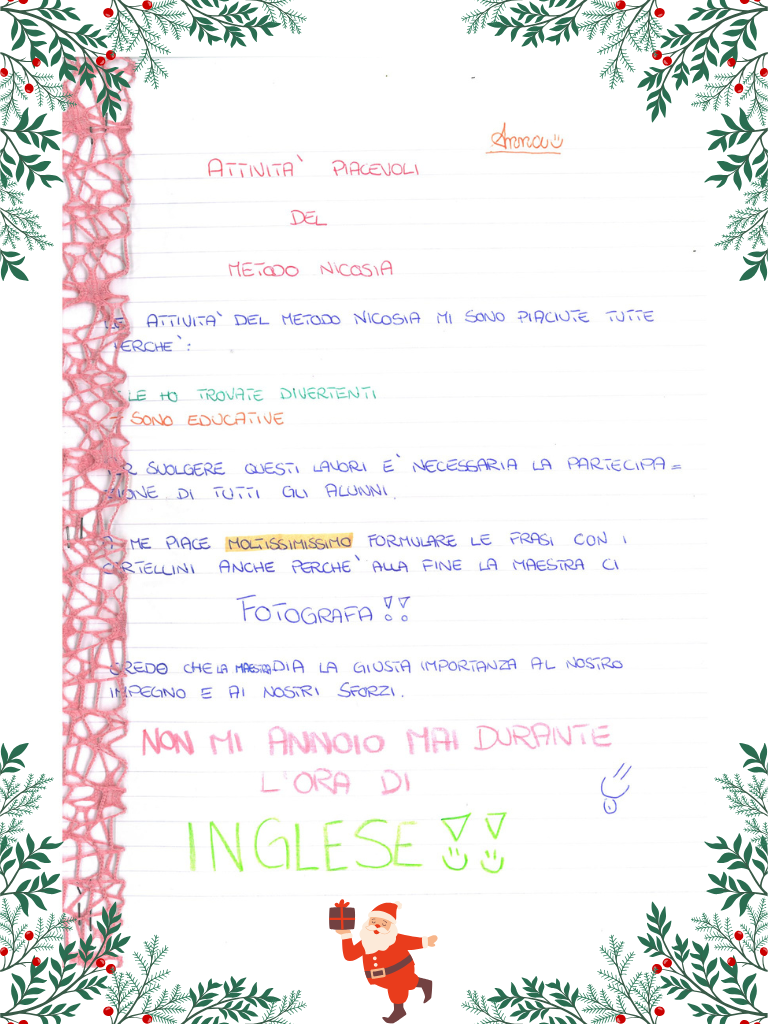 Anna
ATTIVITA` PIACEVOLI
DEL
METODO NICOSIA
LE ATTIVITA` DEL METODO NICOSIA MI SONO PIACIUTE TUTTE
PERCHE`:
- LE HO TROVATE DIVERTENTI
- SONO EDUCATIVE
PER SVOLGERE QUESTI LAVORI E` NECESSARIA LA PARTECIPA=
ZIONE DI TUTTI GLI ALUNNI.
A ME PIACE MOLTISSIMISSIMO FORMULARE LE FRASI CON I
CARTELLINI ANCHE PERCHE` ALLA FINE LA MAESTRA CI
FOTOGRAFA!!
CREDO CHE LA MAESTRA DIA LA GIUSTA IMPORTANZA AL NOSTRO
IMPEGNO E AI NOSTRI SFORZI.
NON MI ANNOIO MAI DURANTE
L'ORA DI
INGLESE!!